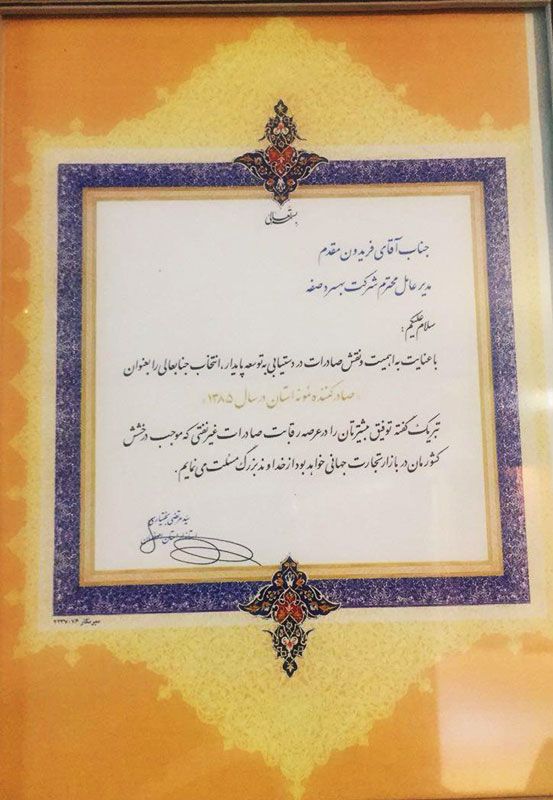 بسمه تعالی
جناب آقای فریدون مقدم
مدیر عامل محترم شرکت بهسرد صفه
سلام علیکم؛
با عنایت به اهمیت و نقش صادرات در دستیابی به توسعه پایدار، انتخاب جنابعالی را بعنوان
«صادرکننده نمونه استان در سال ۱۳۸۵»
تبریک گفته توفیق بیشترتان را در عرصه رقابت صادرات غیر نفتی که موجب درخشش
کشورمان در بازار تجارت جهانی خواهد بود از خداوند بزرگ مسئلت می نمایم.
سید مرتضی بختیاری
استاندار اصفهان